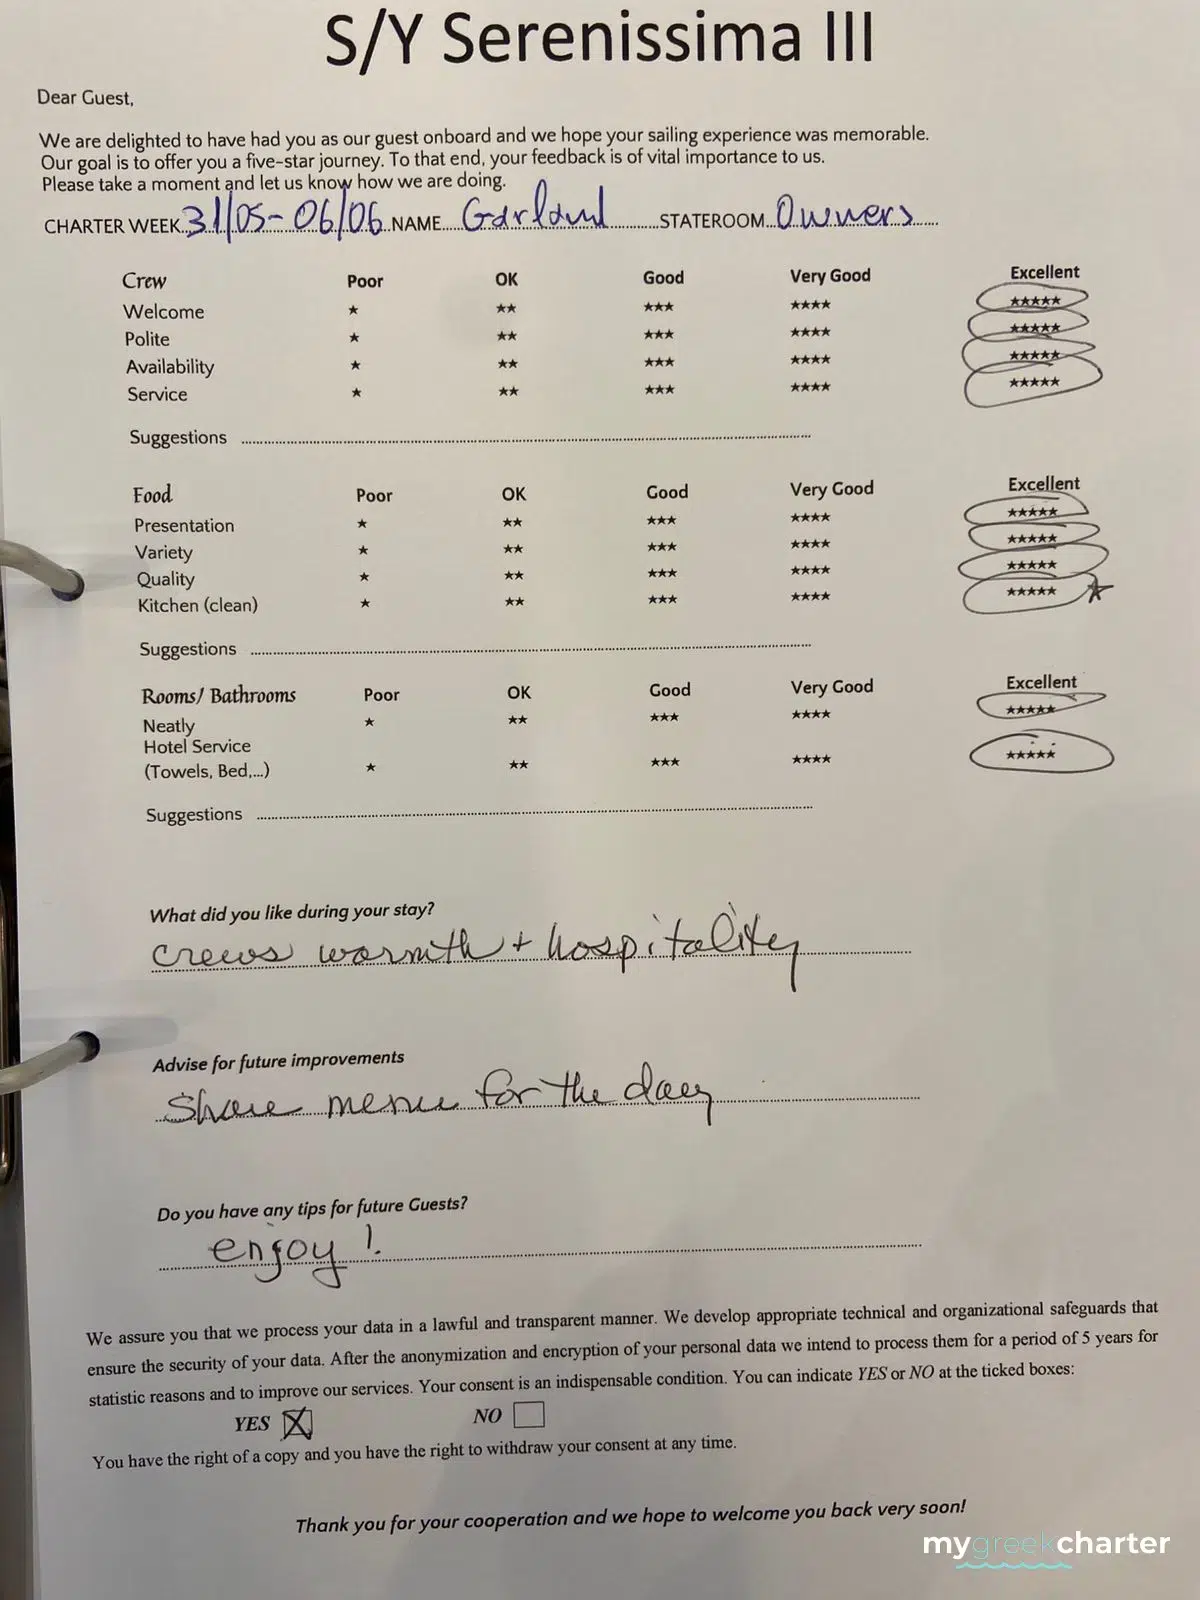 S/Y Serenissima III
Dear Guest,
We are delighted to have had you as our guest onboard and we hope your sailing experience was memorable.
Our goal is to offer you a five-star journey. To that end, your feedback is of vital importance to us.
Please take a moment and let us know how we are doing.
CHARTER WEEK 31/05-06/06 NAME Garland STATEROOM Owners
Crew Poor OK Good Very Good Excellent
Welcome ★ ★★ ★★★ ★★★★ ★★★★★
Polite ★ ★★ ★★★ ★★★★ ★★★★★
Availability ★ ★★ ★★★ ★★★★ ★★★★★
Service ★ ★★ ★★★ ★★★★ ★★★★★
Suggestions
Food Poor OK Good Very Good Excellent
Presentation ★ ★★ ★★★ ★★★★ ★★★★★
Variety ★ ★★ ★★★ ★★★★ ★★★★★
Quality ★ ★★ ★★★ ★★★★ ★★★★★
Kitchen (clean) ★ ★★ ★★★ ★★★★ ★★★★★
Suggestions
Rooms/ Bathrooms Poor OK Good Very Good Excellent
Neatly ★ ★★ ★★★ ★★★★ ★★★★★
Hotel Service
(Towels, Bed,...) ★ ★★ ★★★ ★★★★ ★★★★★
Suggestions
What did you like during your stay?
crews warmth + hospitality
Advise for future improvements
Share menu for the day
Do you have any tips for future Guests?
enjoy!
We assure you that we process your data in a lawful and transparent manner. We develop appropriate technical and organizational safeguards that
ensure the security of your data. After the anonymization and encryption of your personal data we intend to process them for a period of 5 years for
statistic reasons and to improve our services. Your consent is an indispensable condition. You can indicate YES or NO at the ticked boxes:
YES NO
You have the right of a copy and you have the right to withdraw your consent at any time.
Thank you for your cooperation and we hope to welcome you back very soon!
mygreekcharter